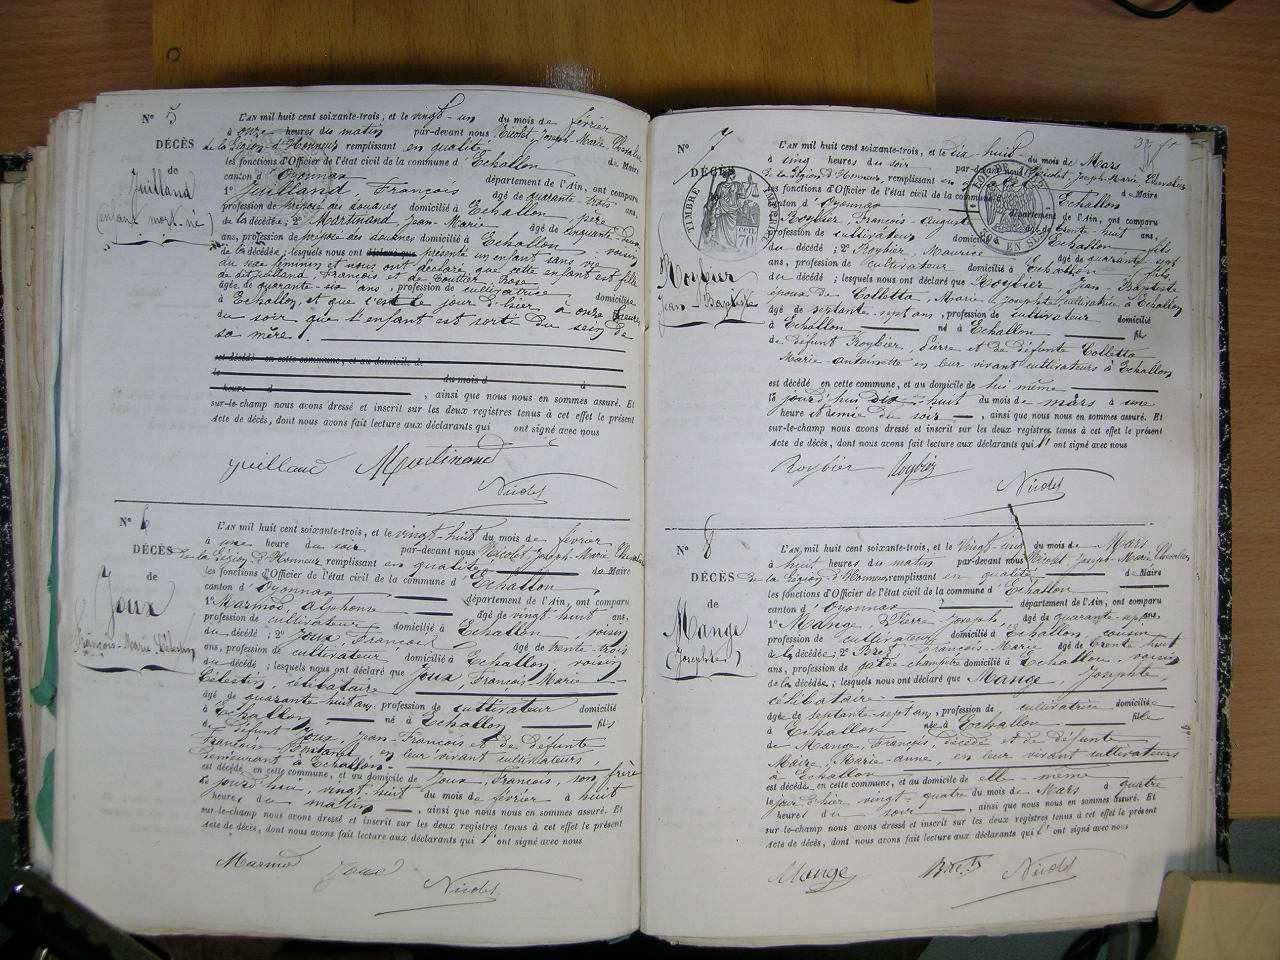 N° 5
DÉCÈS
de
Juilland
(enfant mort-né)
L'AN mil huit cent soixante-trois, et le vingt-un du mois de février
à onze heures du matin par-devant nous Nicolet Joseph-Marie Chevalier
de la Légion d'Honneur remplissant en qualité de Maire
les fonctions d'Officier de l'état civil de la commune d'Echallon
canton d'Oyonnax département de l'Ain, ont comparu
1° Juilland, François âgé de quarante-trois ans,
profession de préposé des douanes domicilié à Echallon, père
de la décédée; 2° Martinand Jean-Marie âgé de cinquante-deux
ans, profession de préposé des douanes domicilié à Echallon voisin
de la décédée; lesquels nous ont présenté un enfant sans vie
du sexe féminin et nous ont déclaré que cette enfant est fille
de dit Juilland François et de Coutier Rose
âgée de quarante-six ans, profession de cultivatrice domiciliée
à Echallon, et que c'est le jour d'hier à onze heures
du soir que l'enfant est sorti du sein de
sa mère.
et décédé en cette commune, et au domicile de
le du mois d à
heure d , ainsi que nous nous en sommes assuré. Et
sur-le-champ nous avons dressé et inscrit sur les deux registres tenus à cet effet le présent
acte de décès, dont nous avons fait lecture aux déclarants qui ont signé avec nous
Juilland Martinand
Nicolet
N° 6
DÉCÈS
de
Joux
François-Marie Célestin
L'AN mil huit cent soixante-trois, et le vingt-huit du mois de février
à une heure du soir par-devant nous Nicolet Joseph-Marie Chevalier
de la Légion d'Honneur remplissant en qualité de Maire
les fonctions d'Officier de l'état civil de la commune d'Echallon
canton d'Oyonnax département de l'Ain, ont comparu
1° Marmod, alphonse âgé de vingt-huit ans,
profession de cultivateur domicilié à Echallon, voisin
du décédé; 2° Joux François âgé de trente-trois
ans, profession de cultivateur domicilié à Echallon, voisin
du décédé; lesquels nous ont déclaré que Joux, François Marie
Célestin, célibataire
âgé de quarante huit ans profession de cultivateur domicilié
à Echallon né à Echallon fils
de défunt Joux, Jean-François et de défunte
Françoise en leur vivant cultivateurs,
demeurant à Echallon.
est décédé en cette commune, et au domicile de Joux, François, son frère
le jourd'hui, vingt-huit du mois de février à huit
heures du matin , ainsi que nous nous en sommes assuré. Et
sur-le-champ nous avons dressé et inscrit sur les deux registres tenus à cet effet le présent
acte de décès, dont nous avons fait lecture aux déclarants qui l'ont signé avec nous
Marmod Joux
Nicolet
N° 7
DÉCÈS
TIMBRE
70
Roybier
Jean-Baptiste
L'AN mil huit cent soixante-trois, et le dix-huit du mois de Mars
à cinq heures du soir par-devant nous Nicolet, Joseph-Marie Chevalier
de la Légion d'Honneur, remplissant en qualité de Maire
les fonctions d'Officier de l'état civil de la commune d'Echallon
canton d'Oyonnax département de l'Ain, ont comparu
1° Roybier, François-Auguste âgé de trente huit ans,
profession de cultivateur domicilié à Echallon fils
du décédé; 2° Roybier, Maurice âgé de quarante sept
ans, profession de cultivateur domicilié à Echallon, fils,
du décédé; lesquels nous ont déclaré que Roybier, Jean-Baptiste
époux de Colletta, Marie Josephte, cultivatrice à Echallon
âgé de septante sept ans, profession de cultivateur domicilié
à Echallon né à Echallon fils
de défunt Roybier, Pierre et de défunte Colletta
Marie Antoinette en leur vivant cultivateurs à Echallon
est décédé en cette commune, et au domicile de lui même
le jourd'hui dix-huit du mois de mars à une
heure et demie du soir , ainsi que nous nous en sommes assuré. Et
sur-le-champ nous avons dressé et inscrit sur les deux registres tenus à cet effet le présent
acte de décès, dont nous avons fait lecture aux déclarants qui l'ont signé avec nous
Roybier Roybier
Nicolet
N° 8
DÉCÈS
de
Mange
(Josephte)
L'AN mil huit cent soixante-trois, et le vingt-cinq du mois de Mars
à huit heures du matin par-devant nous Nicolet Joseph-Marie Chevalier
de la Légion d'Honneur remplissant en qualité de Maire
les fonctions d'Officier de l'état civil de la commune d'Echallon
canton d'Oyonnax département de l'Ain, ont comparu
1° Mange, Pierre Joseph, âgé de quarante ans,
profession de cultivateur domicilié à Echallon, cousin
de la décédée; 2° François-Marie âgé de trente huit
ans, profession de garde-champêtre domicilié à Echallon, voisin
de la décédée; lesquels nous ont déclaré que Mange, Josephte,
célibataire
âgée de septante-sept ans, profession de cultivatrice domiciliée
à Echallon née à Echallon fille
de Mange, François, décédé et de défunte
Maire, Marie-anne, en leur vivant cultivateurs
à Echallon
est décédée en cette commune, et au domicile de elle-même
le jour d'hier vingt-quatre du mois de Mars à quatre
heures du soir , ainsi que nous nous en sommes assuré. Et
sur-le-champ nous avons dressé et inscrit sur les deux registres tenus à cet effet le présent
acte de décès, dont nous avons fait lecture aux déclarants qui l'ont signé avec nous
Mange Nicolet